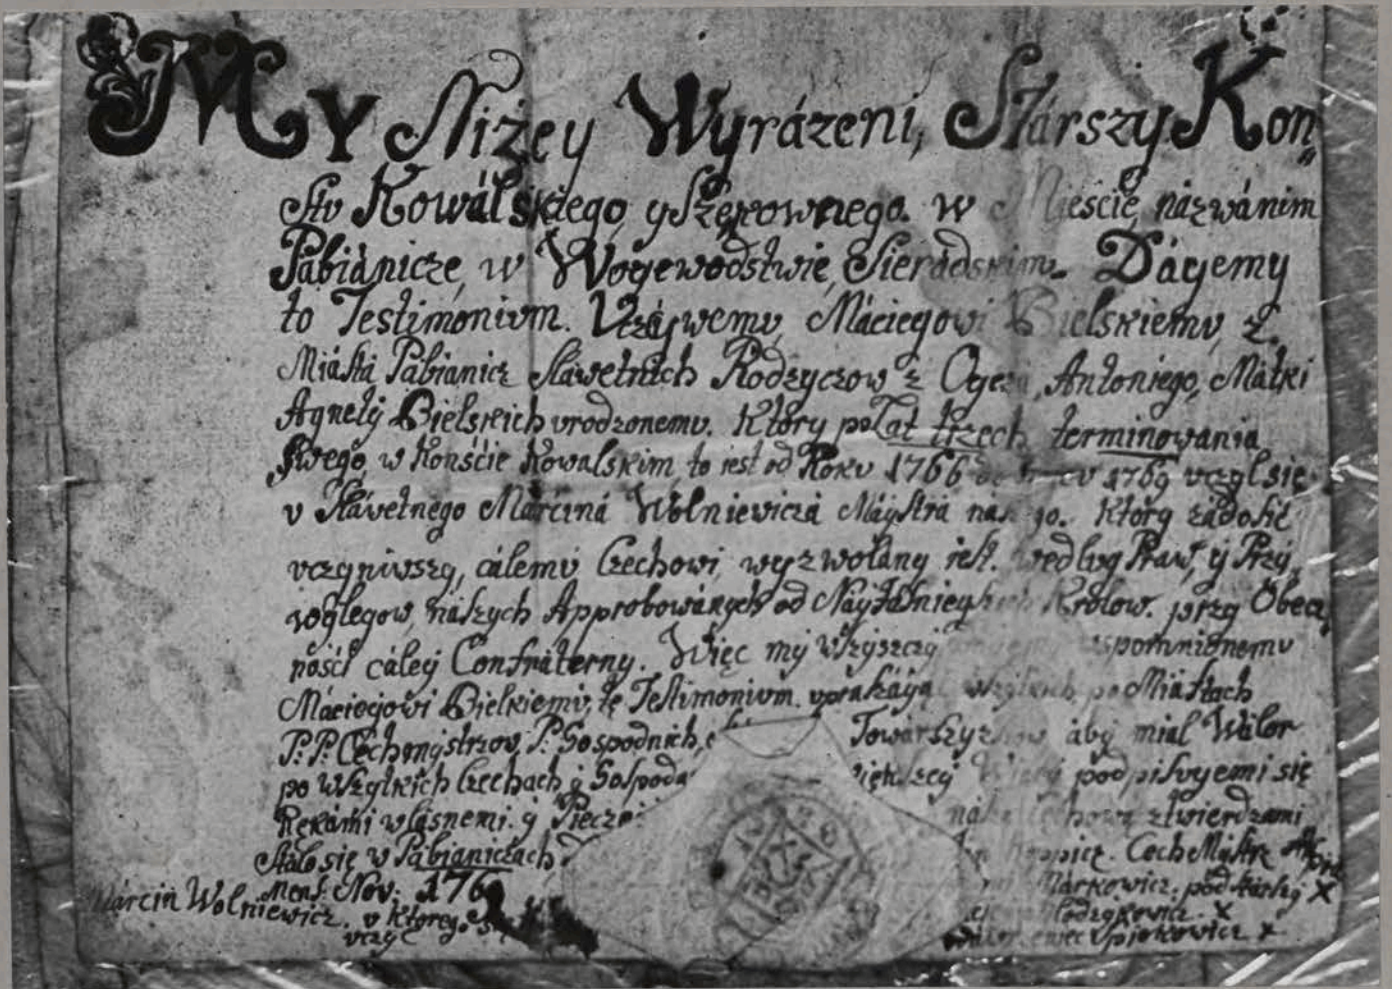 MY Niżey Wyrázeni, Stárszy Kon„
stu Kowálskiego y Slęsownego. w Mieście, názwánim
Pábiánicze, w Woyewodstwie, Sierádskim. Dáyemy
to Testimonivm. Vczćiwemv, Máciegowi Bielskiemv, z.
Miástá Pábianicz Sławetnich Rodzyczow z Oycá, Antoniego, Mátki
Agnety Bielskich vrodzonemv. Który po Lat trzech terminowania
Swego, w Konście Kowalskim, to iest od Rokv 1766 do Rokv 1769 vczył się
v Słávetnego Márciná Wolniewiczá Máystrá nászego. Który zádosić
vczyniwszy, cálemv Czechowi, wyzwolány iest. wedlvg Praw, ÿ Przy
wyleyow, nászych Approbowánych od Nayiásnieyszych Królow. przy Obec„
ności cáley Confráterny. Więc my Wszyszczy wspomnionemv
Máciegowi Bielskiemv, te Testimonivm. po Miástach
P: P: Cechmystrzow, P: Gospodnich, Towárszyszow áby miał Wálor
po Wszytkich Czechach y Gospodá podpisvyemi się
Rękámi wlásnemi. y Pieczę ztwierdzámi
Stálo się w Pábiániczach Cech Mystrz
Mens: Nov: 1769 Márkowicz. pod stárszy X
Márcin Wolniewicz. v Którego się X
vczył X